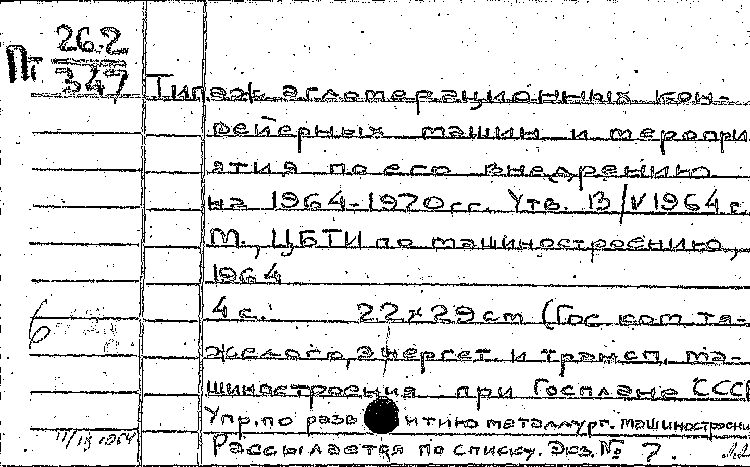 Пт 26.2
347
Типаж агломерационных кон-
вейерных машин и меропри
ятия по его внедрению
на 1964-1970гг. Утв. 13/V 1964 г.
М., ЦБТИ по машиностроению,
1964
4 с. 22×29 см (Гос ком тя-
желого, энергет. и трансп. ма-
шиностроения при Госплане СССР
Упр. по разв итию металлург. машиностроени
Рассылается по списку. Экз. № 7.